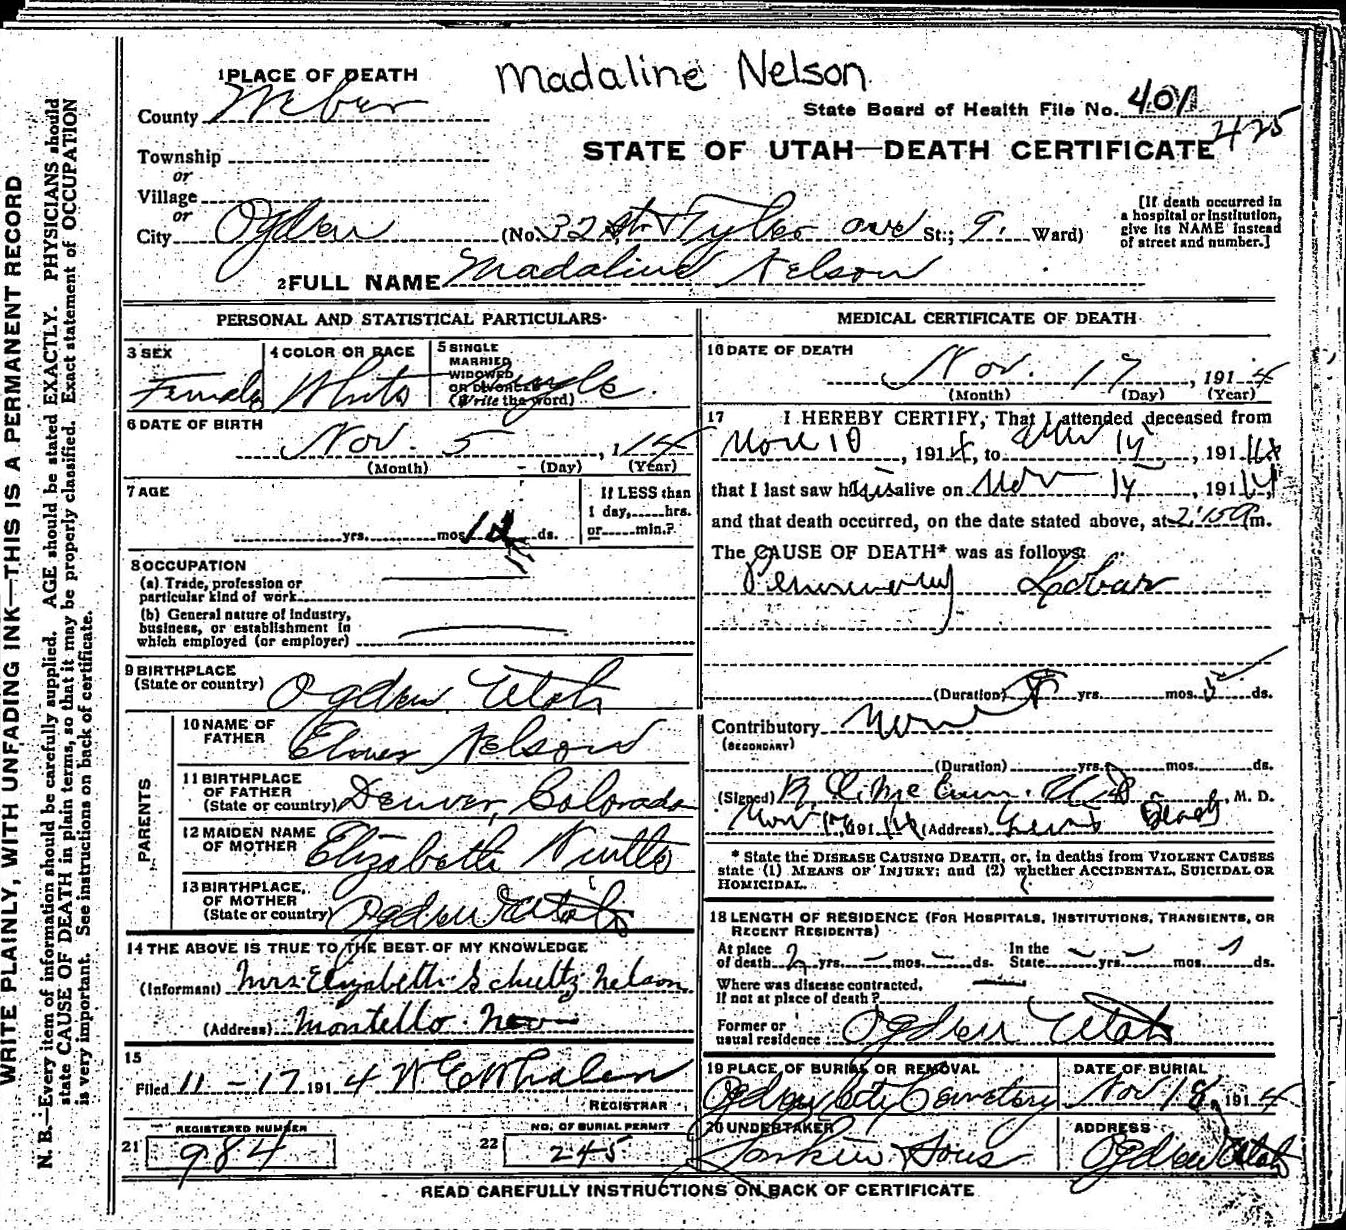 Madaline Nelson
1 PLACE OF DEATH
County Weber
State Board of Health File No. 401
425
Township
or
STATE OF UTAH—DEATH CERTIFICATE
Village
or
City Ogden (No. 32 St & Tyler ave St.; 9. Ward)
[If death occurred in
a hospital or institution,
give its NAME instead
of street and number.]
2 FULL NAME Madaline Nelson
PERSONAL AND STATISTICAL PARTICULARS
3 SEX
Female
4 COLOR OR RACE
White
5 SINGLE
MARRIED
WIDOWED
OR DIVORCED
(Write the word)
Single.
6 DATE OF BIRTH
Nov. 5, 14
(Month) (Day) (Year)
7 AGE
yrs. mos. 12 ds.
If LESS than
1 day, hrs.
or min.?
8 OCCUPATION
(a) Trade, profession or
particular kind of work
(b) General nature of industry,
business, or establishment in
which employed (or employer)
9 BIRTHPLACE
(State or country) Ogden Utah
PARENTS
10 NAME OF
FATHER Elmer Nelson
11 BIRTHPLACE
OF FATHER
(State or country) Denver, Colorado
12 MAIDEN NAME
OF MOTHER Elizabeth
13 BIRTHPLACE,
OF MOTHER
(State or country) Ogden Utah
14 THE ABOVE IS TRUE TO THE BEST OF MY KNOWLEDGE
(Informant) Mrs. Elizabeth Schultz Nelson
(Address) Montello Nev
15
Filed 11-17 1914 W E Whalen
REGISTRAR
21 REGISTERED NUMBER
984
22 NO. OF BURIAL PERMIT
245
MEDICAL CERTIFICATE OF DEATH
16 DATE OF DEATH
Nov. 17, 1914
(Month) (Day) (Year)
17 I HEREBY CERTIFY, That I attended deceased from
Nov 10, 1914, to Nov 14, 191
that I last saw h alive on Nov 14, 1914,
and that death occurred, on the date stated above, at 2:15 m.
The CAUSE OF DEATH* was as follows:
Pneumonia Lobar
(Duration) yrs. mos. 5 ds.
Contributory None
(SECONDARY)
(Duration) yrs. mos. ds.
(Signed) , M. D.
Nov 1914 (Address)
* State the DISEASE CAUSING DEATH, or, in deaths from VIOLENT CAUSES
state (1) MEANS OF INJURY; and (2) whether ACCIDENTAL, SUICIDAL OR
HOMICIDAL.
18 LENGTH OF RESIDENCE (FOR HOSPITALS, INSTITUTIONS, TRANSIENTS, OR
RECENT RESIDENTS)
At place
of death yrs. mos. ds.
In the
State yrs. mos. ds.
Where was disease contracted,
if not at place of death?
Former or
usual residence Ogden Utah
19 PLACE OF BURIAL OR REMOVAL
Ogden City Cemetery
DATE OF BURIAL
Nov 18, 1914
20 UNDERTAKER
Larkin & Sons
ADDRESS
Ogden Utah
READ CAREFULLY INSTRUCTIONS ON BACK OF CERTIFICATE
WRITE PLAINLY, WITH UNFADING INK—THIS IS A PERMANENT RECORD
N. B.—Every item of information should be carefully supplied. AGE should be stated EXACTLY. PHYSICIANS should
state CAUSE OF DEATH in plain terms, so that it may be properly classified. Exact statement of OCCUPATION
is very important. See instructions on back of certificate.